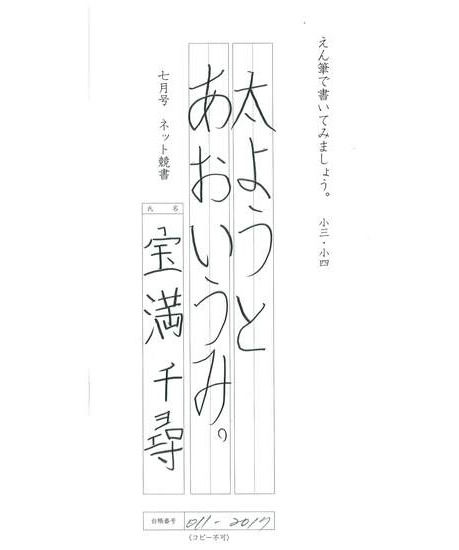 えん筆で書いてみましょう。 小三・小四
太ようと
あおいうみ。
七月号 ネット競書
氏名
宝満千尋
台帳番号 011-2017
(コピー不可)